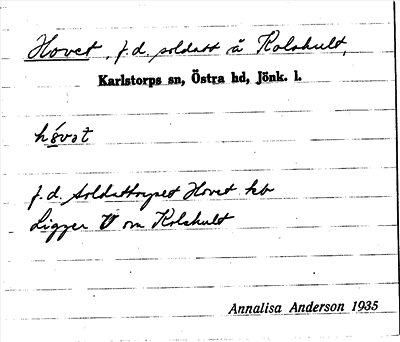 Hovet, f.d. soldatt å Kolshult,
Karlstorps sn, Östra hd, Jönk. l.
hơvət
f.d. Soldattorpet Hovet kb
Ligger V om Kolshult
Annalisa Anderson 1935